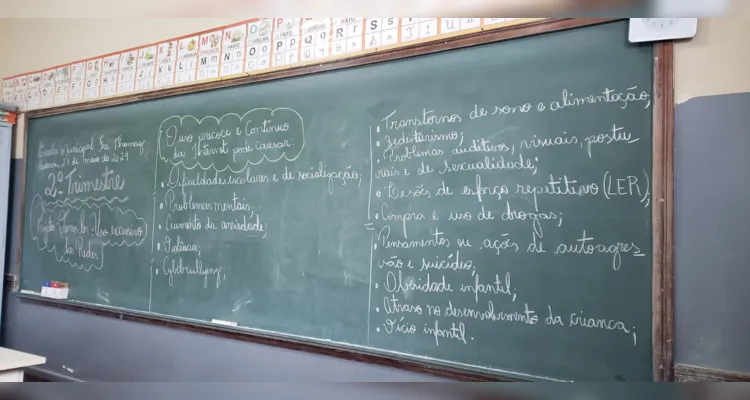 Escola Municipal
de maio de 2024
2º Trimestre
Uso excessivo
das Redes
O uso precoce e Contínuo
da Internet pode causar:
• Dificuldades escolares e de socialização;
• Problemas mentais;
• Aumento da ansiedade;
• Violência;
• Cyberbullying;
• Transtornos de sono e alimentação;
• Sedentarismo;
• Problemas auditivos, visuais, postu
rais e de sexualidade;
• Lesões de esforço repetitivo (LER);
• Compra e uso de drogas;
• Pensamentos ou ações de autoagres_
são e suicídio;
• Obesidade infantil;
• Atraso no desenvolvimento da criança;
• Vício infantil.